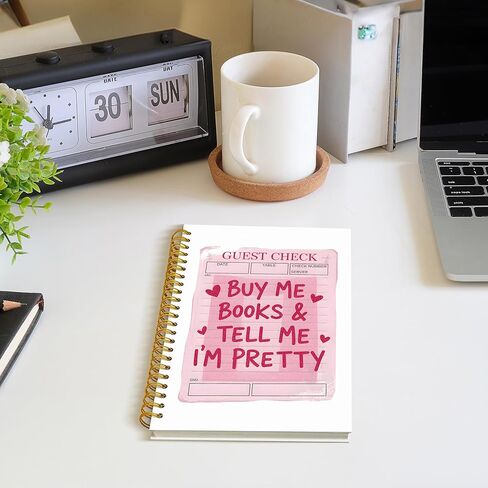 DATE
DAY
30
SUN
GUEST CHECK
DATE
TABLE
CHECK NUMBER
SERVER
BUY ME
BOOKS &
TELL ME
I'M PRETTY